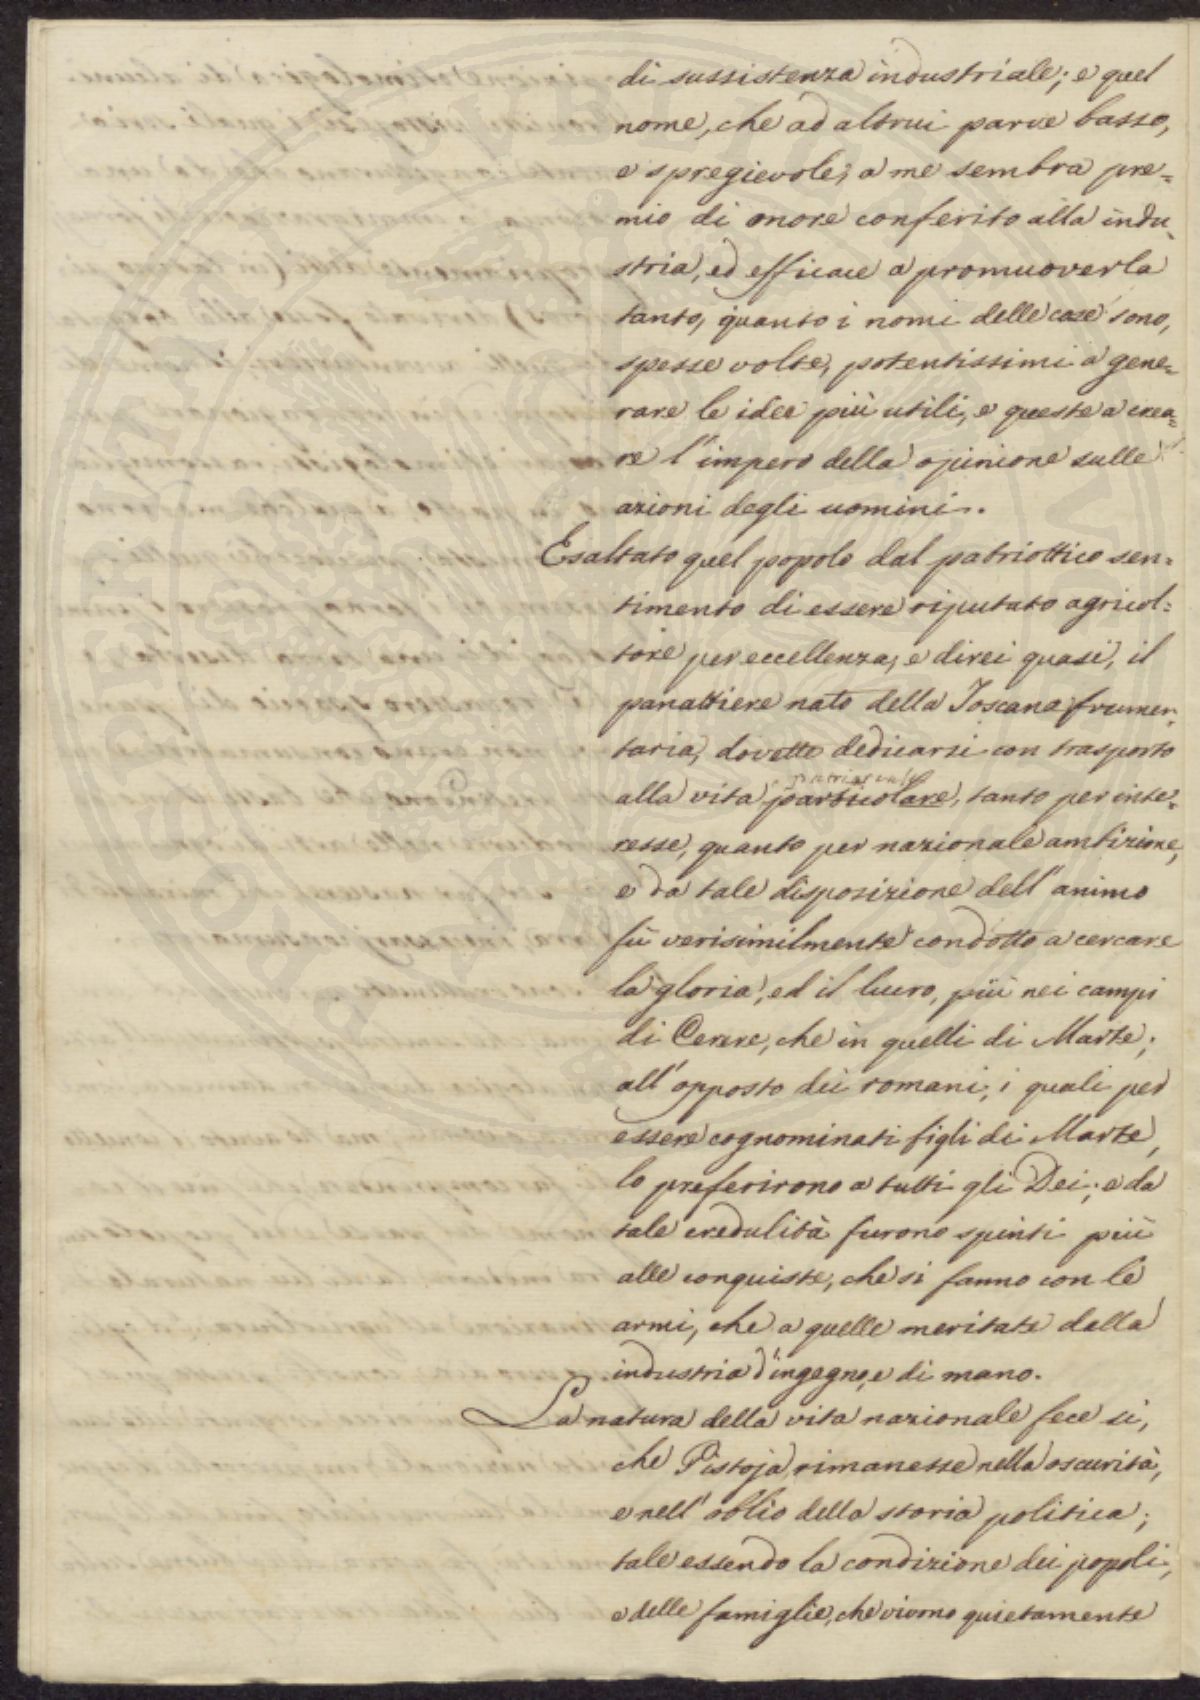 di sussistenza industriale; e quel
nome, che ad altrui parve basso,
e spregievole, a me sembra pre=
mio di onore conferito alla indu=
stria, ed efficace a promuoverla
tanto, quanto i nomi delle cose sono,
spesse volte, potentissimi a gene=
rare le idee più utili, e queste a crea=
re l'impero della opinione sulle
azioni degli uomini.
Esaltato quel popolo dal patriottico sen=
timento di essere riputato agricol=
tore per eccellenza, e direi quasi, il
panattiere nato della Toscana frumen=
taria, dovette dedicarsi con trasporto
patriarcale
alla vita particolare, tanto per inte=
resse, quanto per nazionale ambizione,
e da tale disposizione dell'animo
fù verisimilmente condotto a cercare
la gloria, ed il lucro, più nei campi
di Cerere, che in quelli di Marte;
all'opposto dei romani, i quali per
essere cognominati figli di Marte,
lo preferirono a tutti gli Dei; e da
tale credulità furono spinti più
alle conquiste, che si fanno con le
armi, che a quelle meritate dalla
industria d'ingegno, e di mano.
La natura della vita nazionale fece si,
che Pistoja rimanesse nella oscurità,
e nell'oblio della storia politica;
tale essendo la condizione dei popoli,
e delle famiglie, che vivono quietamente